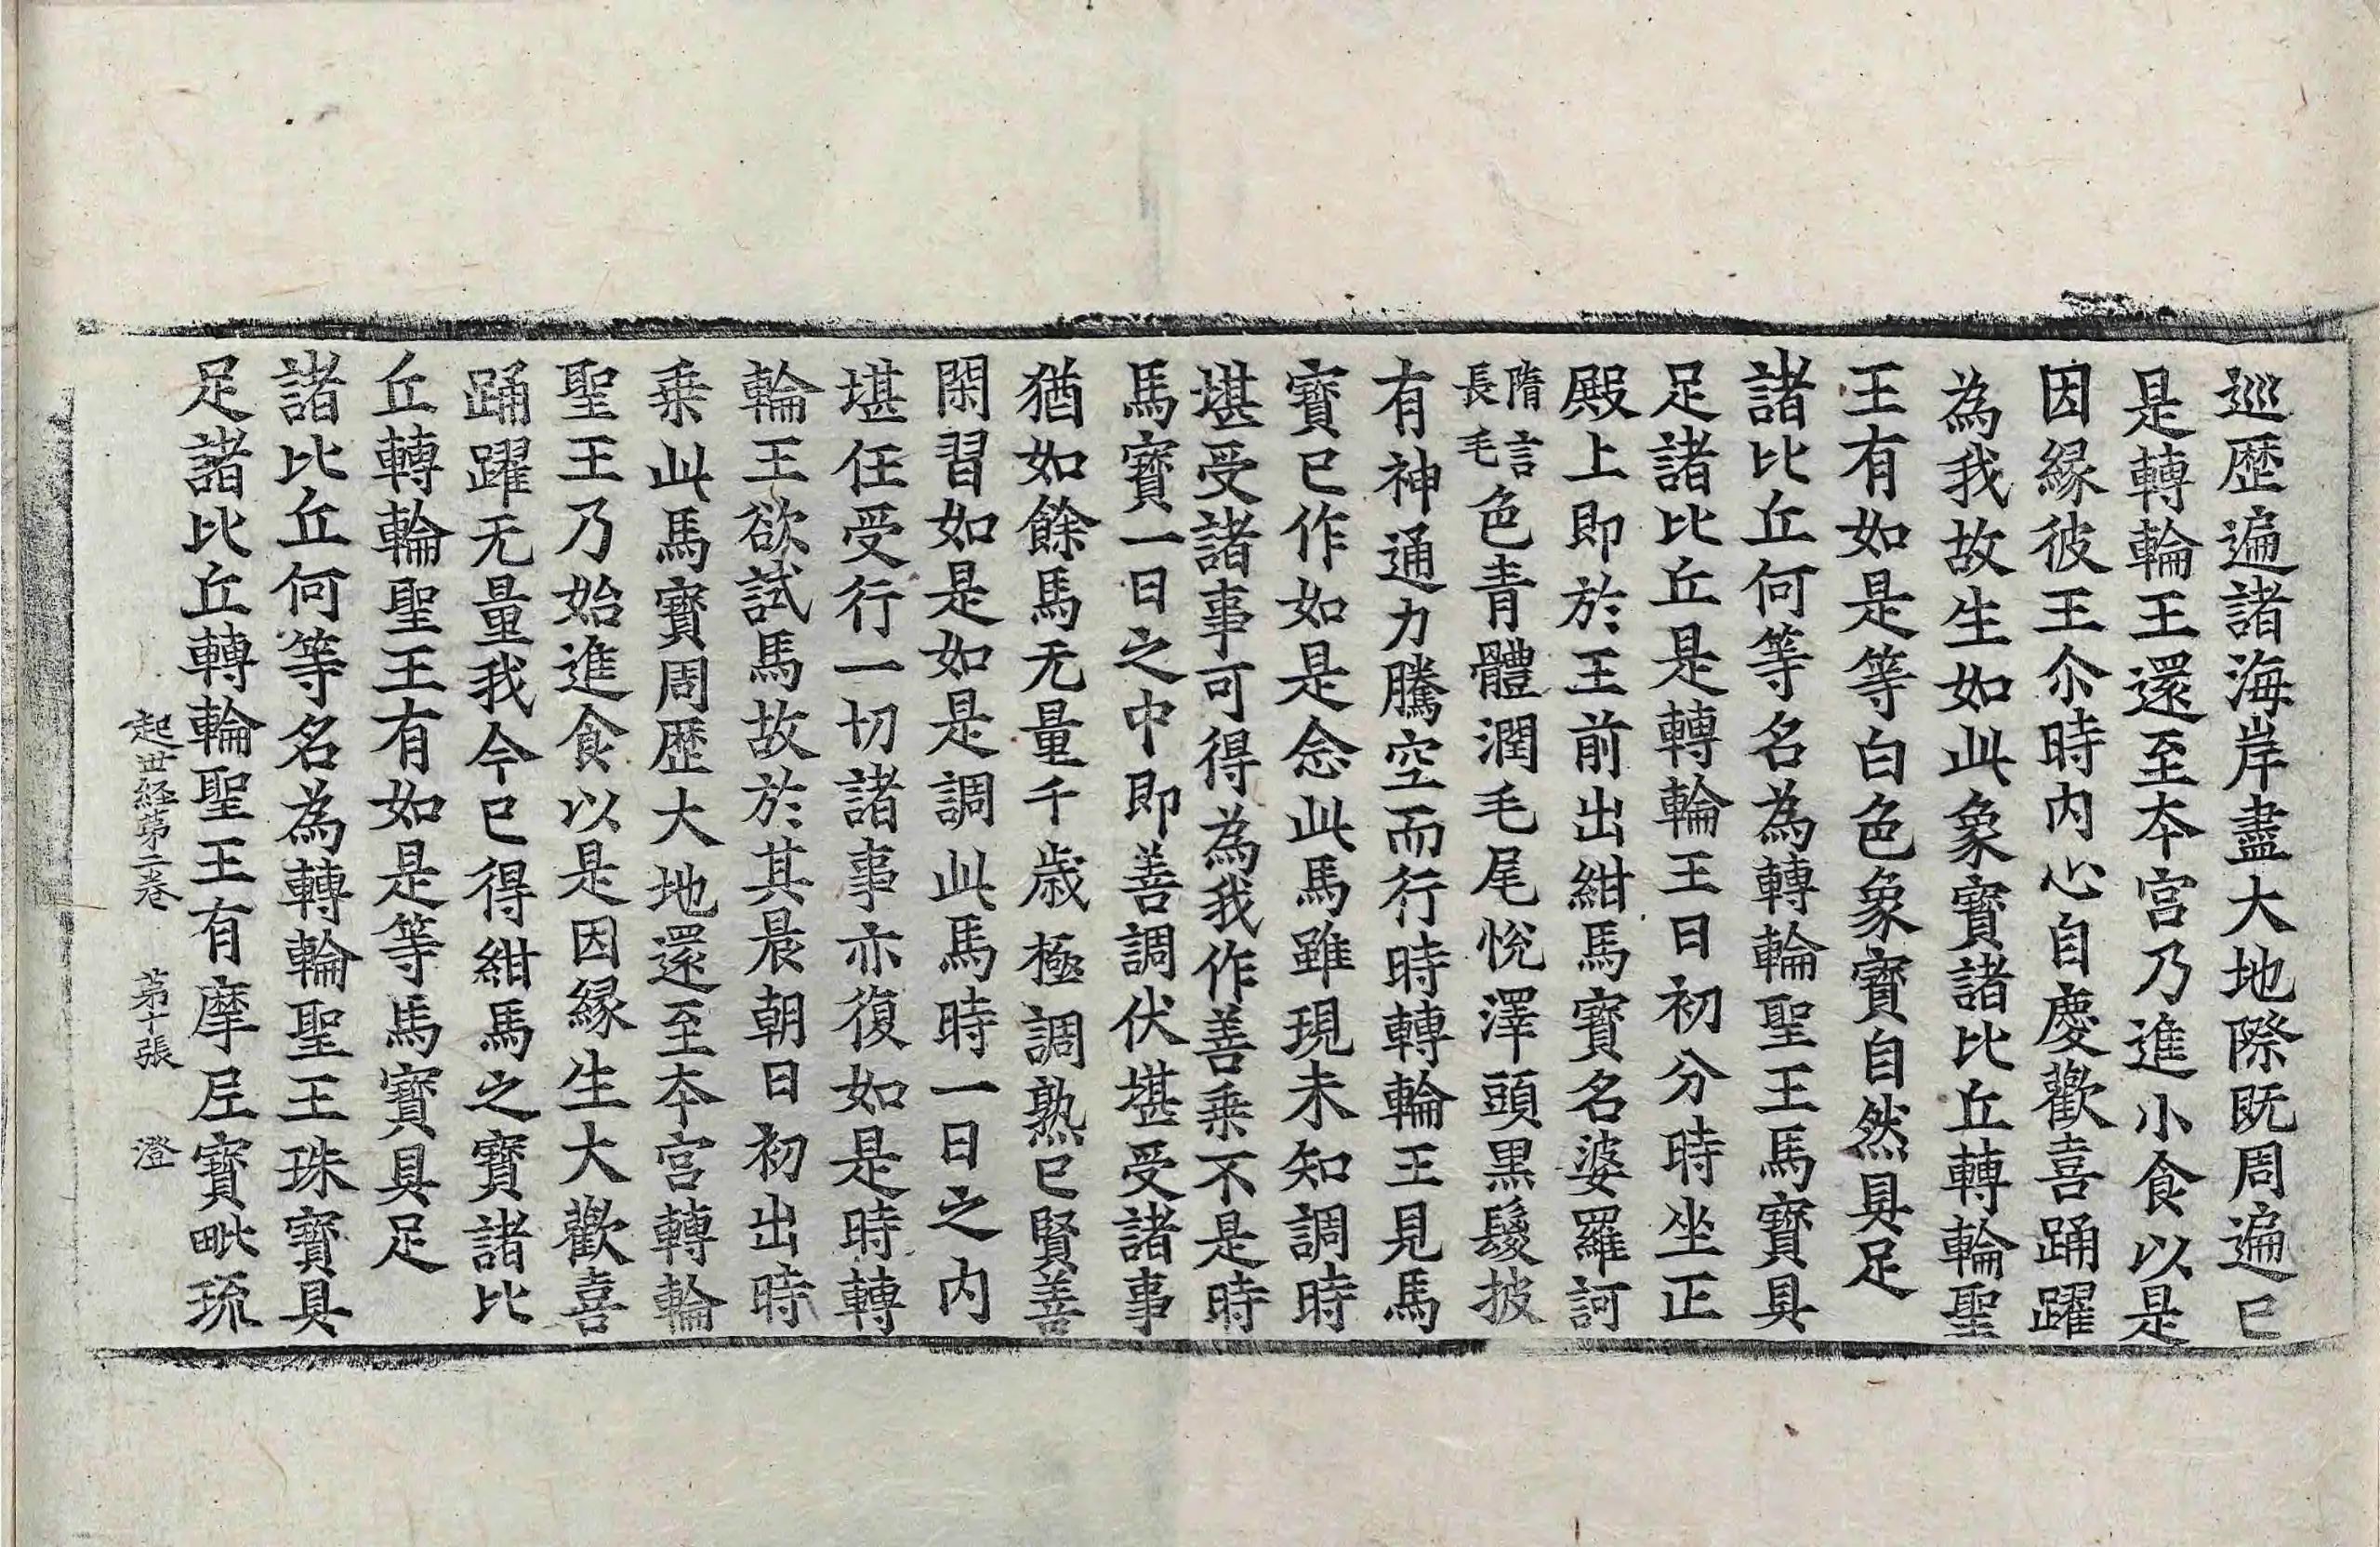 巡歷遍諸海岸盡大地際既周遍已
是轉輪王還至夲宫乃進小食以是
因緣彼王尒時内心自慶歡喜踊躍
為我故生如此象寳諸比丘轉輪聖
王有如是等白色象寳自然具足
諸比丘何等名為轉輪聖王馬寳具
足諸比丘是轉輪王日初分時坐正
殿上即於王前出紺馬寳名婆羅訶
隋言
長毛色青體潤毛尾恱澤頭黒騣披
有神通力騰空而行時轉輪王見馬
寳已作如是念此馬雖現未知調時
堪受諸事可得為我作善乗不是時
馬寳一日之中即善調伏堪受諸事
猶如餘馬无量千歳極調熟已賢善
閑習如是如是調此馬時一日之内
堪任受行一切諸事亦復如是時轉
輪王欲試馬故於其晨朝日初出時
乗此馬寳周歴大地還至夲宫轉輪
聖王乃始進食以是因縁生大歡喜
踊躍无量我今已得紺馬之寳諸比
丘轉輪聖王有如是等馬寳具足
諸比丘何等名為轉輪聖王珠寳具
足諸比丘轉輪聖王有摩尼寳毗琉
起世経第二卷 第十張 澄